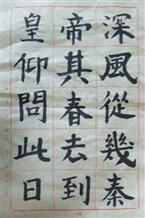 深風從幾秦
帝其春去到
皇仰問此日